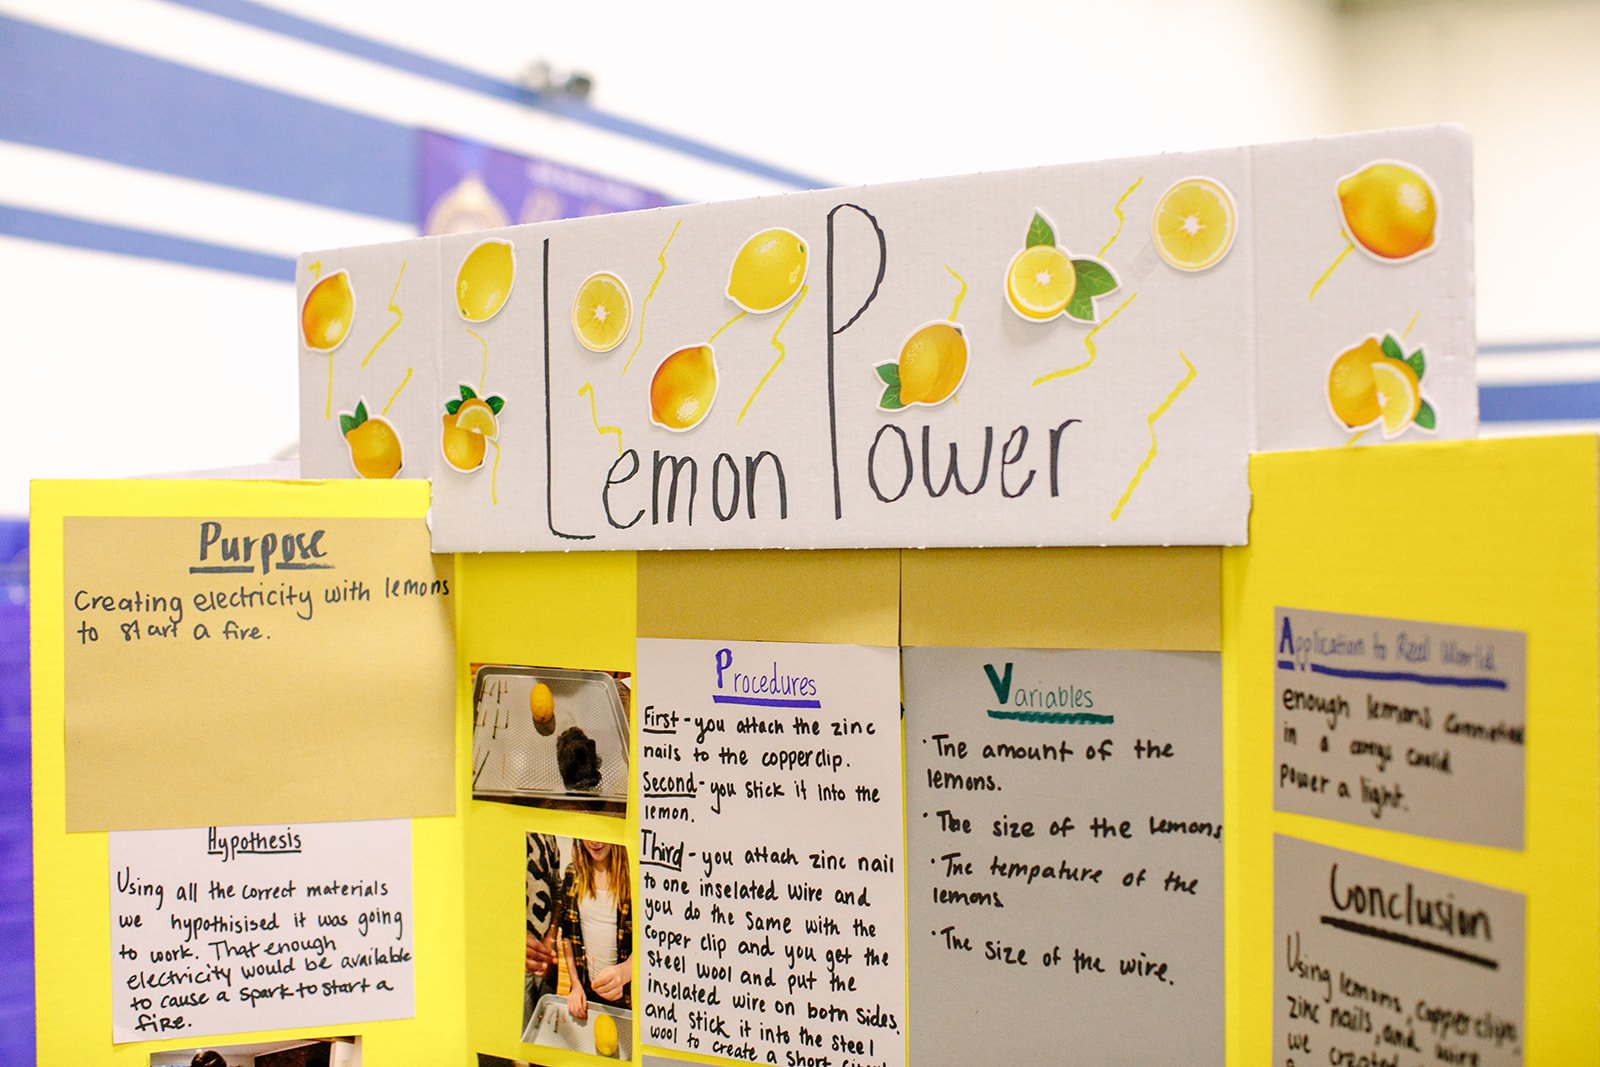 Lemon Power
Purpose
Creating electricity with lemons
to start a fire.
Hypothesis
Using all the correct materials
we hypothisised it was going
to work. That enough
electricity would be available
to cause a spark to start a
fire.
Procedures
First - you attach the zinc
nails to the copper clip.
Second - you stick it into the
lemon.
Third - you attach zinc nail
to one inselated wire and
you do the same with the
copper clip and you get the
steel wool and put the
inselated wire on both sides.
and stick it into the steel
wool to create a short
Variables
· The amount of the
lemons.
· The size of the lemons
· The tempature of the
lemons.
· The size of the wire.
Application to Real World
enough lemons connected
in a could
power a light.
Conclusion
Using lemons, copper clips,
zinc nails, and wire
we created